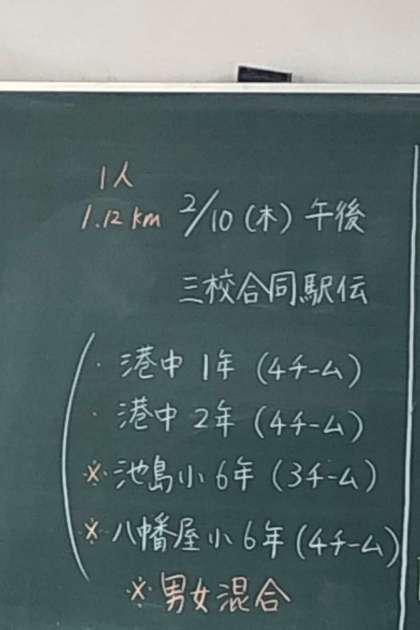 1人
1.12km 2/10(木)午後
三校合同駅伝
・港中 1年 (4チーム)
・港中 2年 (4チーム)
※・池島小 6年 (3チーム)
※・八幡屋小 6年 (4チーム)
※男女混合